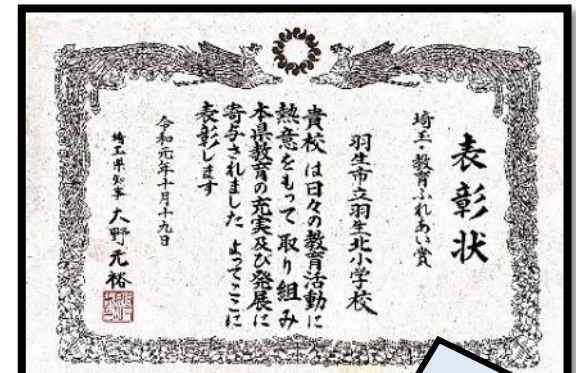 表彰状
埼玉・教育ふれあい賞
羽生市立羽生北小学校
貴校は日々の教育活動に
熱意をもって取り組み
本県教育の充実及び発展に
寄与されました よってここに
表彰します
令和元年十月十九日
埼玉県知事 大野元裕